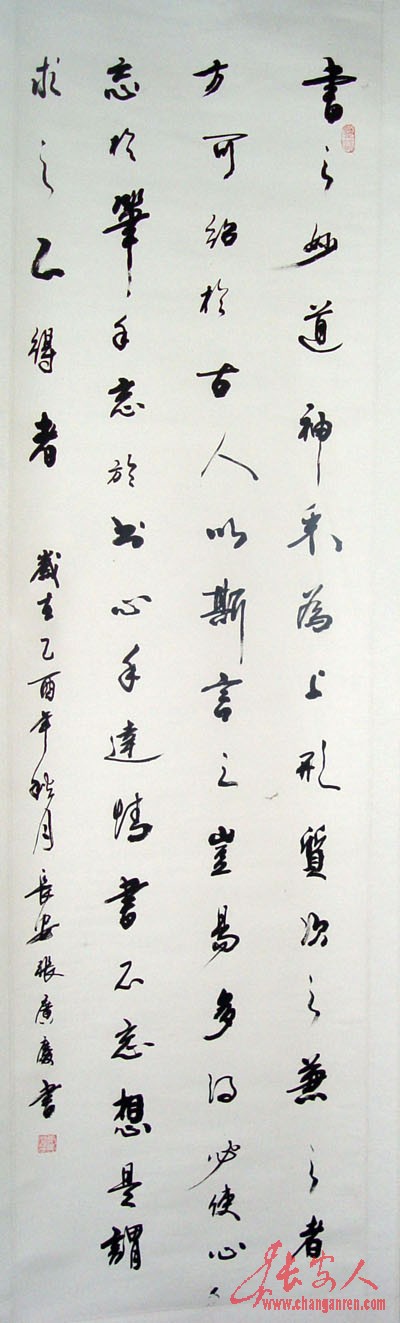 書之妙道神采為上形質次之兼之者
方可紹於古人以斯言之豈易多得必使心
忘於筆手忘於書心手達情書不忘想是謂
求之不得者 歲在乙酉年秋月長安張廣慶書
长安人
www.changanren.com